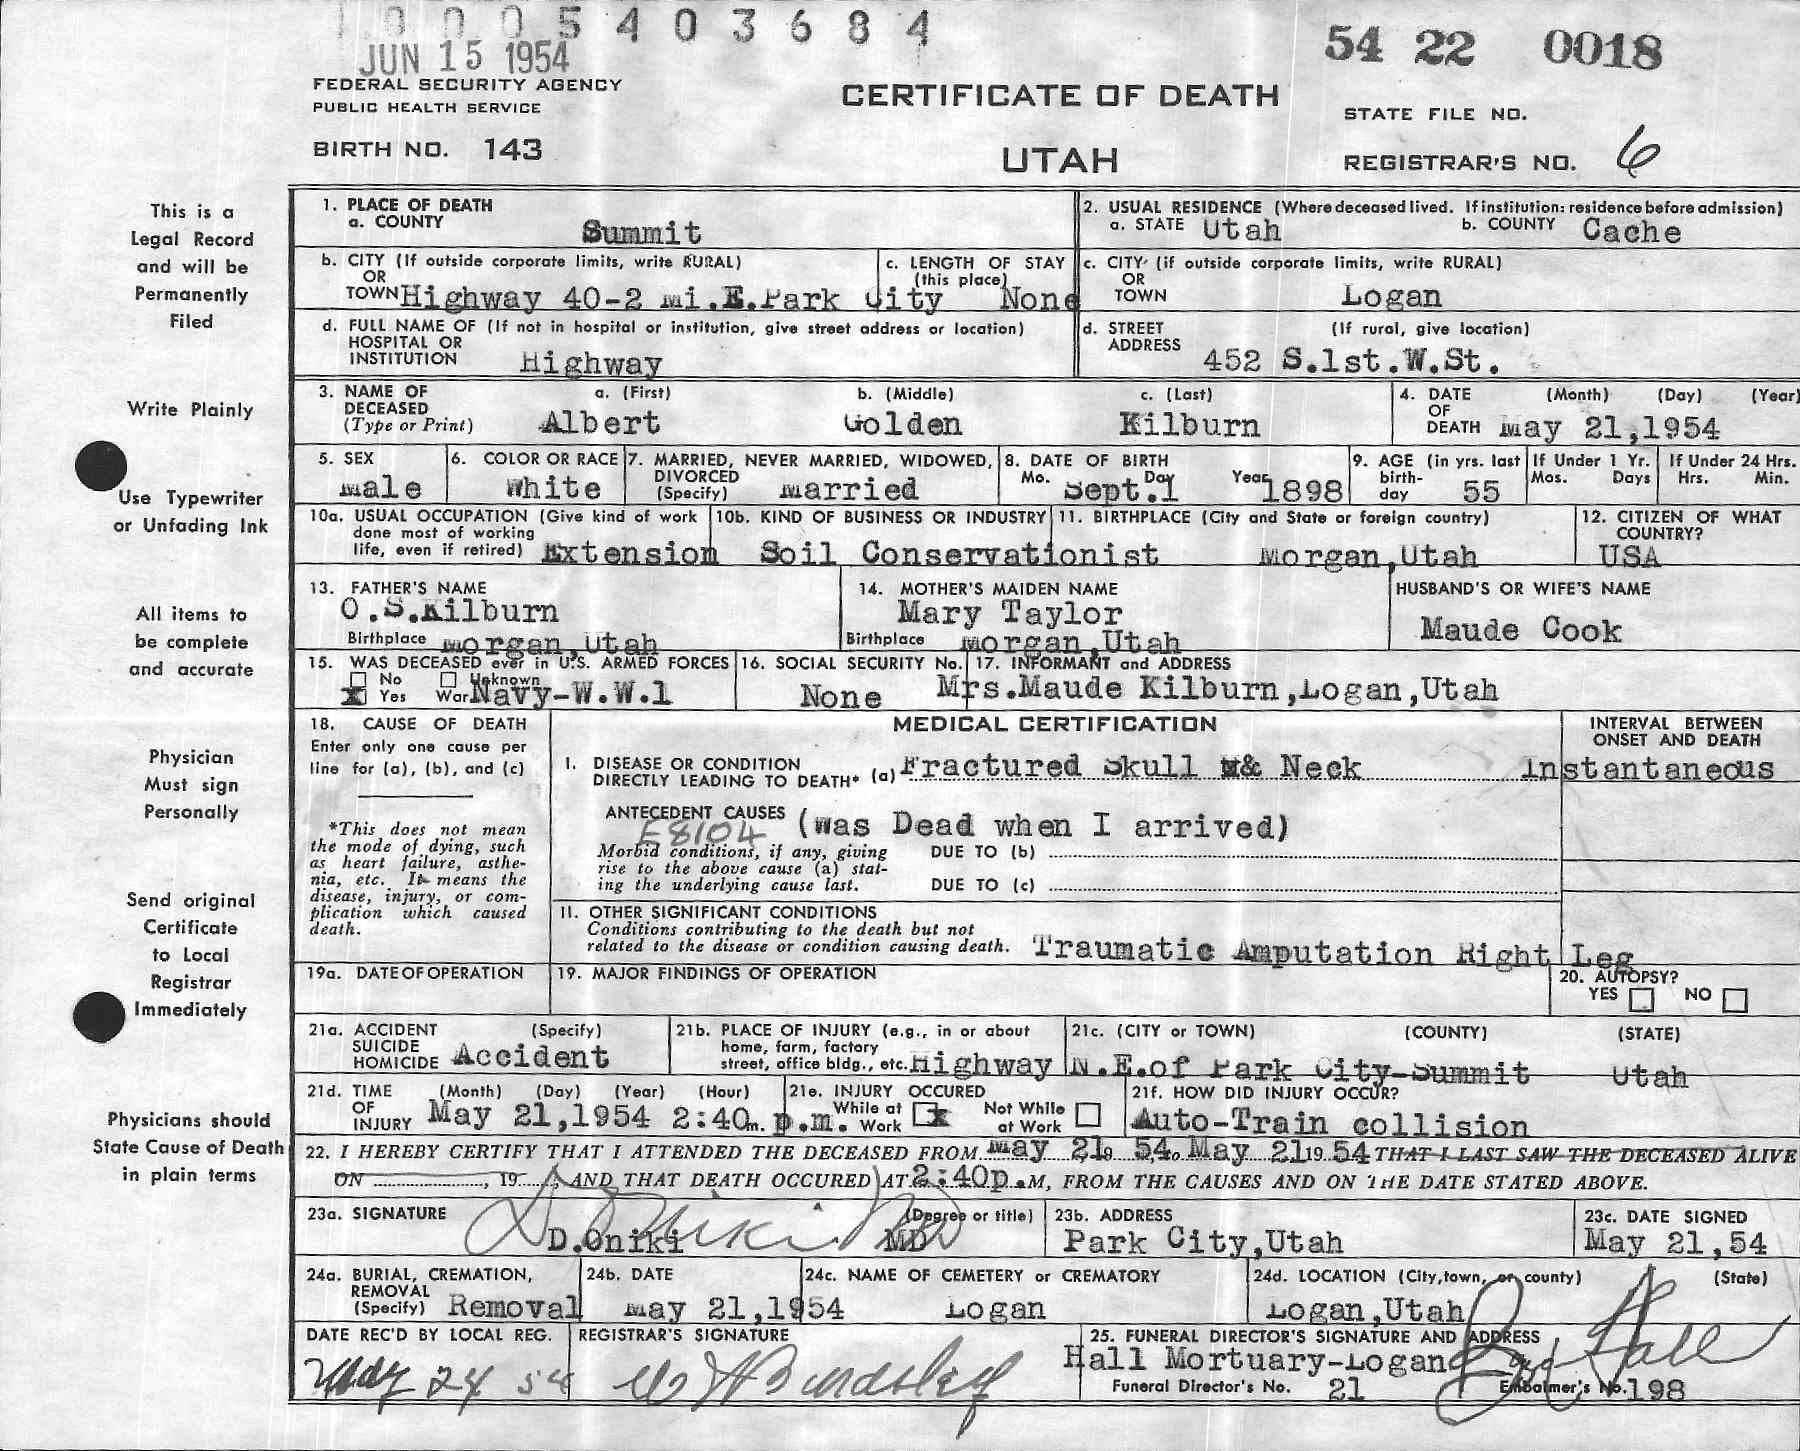 10005403684
JUN 15 1954
54 22 0018
FEDERAL SECURITY AGENCY
PUBLIC HEALTH SERVICE
CERTIFICATE OF DEATH
STATE FILE NO.
BIRTH NO. 143
UTAH
REGISTRAR'S NO. 6
This is a
Legal Record
and will be
Permanently
Filed
Write Plainly
Use Typewriter
or Unfading Ink
All items to
be complete
and accurate
Physician
Must sign
Personally
Send original
Certificate
to Local
Registrar
Immediately
Physicians should
State Cause of Death
in plain terms
1. PLACE OF DEATH
a. COUNTY Summit
2. USUAL RESIDENCE (Where deceased lived. If institution: residence before admission)
a. STATE Utah b. COUNTY Cache
b. CITY (If outside corporate limits, write RURAL)
OR
TOWN Highway 40-2 mi.E.Park City
c. LENGTH OF STAY
(this place)
None
c. CITY (if outside corporate limits, write RURAL)
OR
TOWN Logan
d. FULL NAME OF (If not in hospital or institution, give street address or location)
HOSPITAL OR
INSTITUTION Highway
d. STREET (If rural, give location)
ADDRESS 452 S.1st.W.St.
3. NAME OF a. (First) b. (Middle) c. (Last)
DECEASED
(Type or Print) Albert Golden Kilburn
4. DATE (Month) (Day) (Year)
OF
DEATH May 21,1954
5. SEX
Male
6. COLOR OR RACE
White
7. MARRIED, NEVER MARRIED, WIDOWED,
DIVORCED
(Specify) Married
8. DATE OF BIRTH
Mo. Day Year
Sept.1 1898
9. AGE (in yrs. last
birth-
day 55
If Under 1 Yr.
Mos. Days
If Under 24 Hrs.
Hrs. Min.
10a. USUAL OCCUPATION (Give kind of work
done most of working
life, even if retired) Extension
10b. KIND OF BUSINESS OR INDUSTRY
Soil Conservationist
11. BIRTHPLACE (City and State or foreign country)
Morgan,Utah
12. CITIZEN OF WHAT
COUNTRY?
USA
13. FATHER'S NAME
O.S.Kilburn
Birthplace Morgan,Utah
14. MOTHER'S MAIDEN NAME
Mary Taylor
Birthplace Morgan,Utah
HUSBAND'S OR WIFE'S NAME
Maude Cook
15. WAS DECEASED ever in U.S. ARMED FORCES
No Unknown
x Yes War Navy-W.W.1
16. SOCIAL SECURITY No.
None
17. INFORMANT and ADDRESS
Mrs.Maude Kilburn,Logan,Utah
18. CAUSE OF DEATH
Enter only one cause per
line for (a), (b), and (c)
*This does not mean
the mode of dying, such
as heart failure, asthe-
nia, etc. It means the
disease, injury, or com-
plication which caused
death.
MEDICAL CERTIFICATION
INTERVAL BETWEEN
ONSET AND DEATH
I. DISEASE OR CONDITION
DIRECTLY LEADING TO DEATH* (a) Fractured Skull & Neck Instantaneous
ANTECEDENT CAUSES (Was Dead when I arrived)
E8104
Morbid conditions, if any, giving
rise to the above cause (a) stat-
ing the underlying cause last.
DUE TO (b)
DUE TO (c)
II. OTHER SIGNIFICANT CONDITIONS
Conditions contributing to the death but not
related to the disease or condition causing death. Traumatic Amputation Right Leg
19a. DATE OF OPERATION
19. MAJOR FINDINGS OF OPERATION
20. AUTOPSY?
YES NO
21a. ACCIDENT (Specify)
SUICIDE
HOMICIDE Accident
21b. PLACE OF INJURY (e.g., in or about
home, farm, factory
street, office bldg., etc. Highway
21c. (CITY or TOWN) (COUNTY) (STATE)
N.E.of Park City-Summit Utah
21d. TIME (Month) (Day) (Year) (Hour)
OF
INJURY May 21,1954 2:40m. p.m.
21e. INJURY OCCURED
While at x Not While
Work at Work
21f. HOW DID INJURY OCCUR?
Auto-Train collision
22. I HEREBY CERTIFY THAT I ATTENDED THE DECEASED FROM May 21 19 54, to May 21 19 54 THAT I LAST SAW THE DECEASED ALIVE
ON , 19 , AND THAT DEATH OCCURED AT 2:40p.M, FROM THE CAUSES AND ON THE DATE STATED ABOVE.
23a. SIGNATURE (Degree or title)
D Oniki MD
D.Oniki MD
23b. ADDRESS
Park City,Utah
23c. DATE SIGNED
May 21,54
24a. BURIAL, CREMATION,
REMOVAL
(Specify) Removal
24b. DATE
May 21,1954
24c. NAME OF CEMETERY or CREMATORY
Logan
24d. LOCATION (City,town, or county) (State)
Logan,Utah
DATE REC'D BY LOCAL REG.
May 24 54
REGISTRAR'S SIGNATURE
25. FUNERAL DIRECTOR'S SIGNATURE AND ADDRESS
Hall Mortuary-Logan
Hall
Funeral Director's No. 21 Embalmer's No. 198